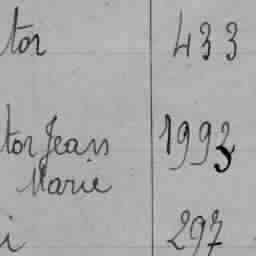 tor 433
tor Jean 1993
Marie
i 297